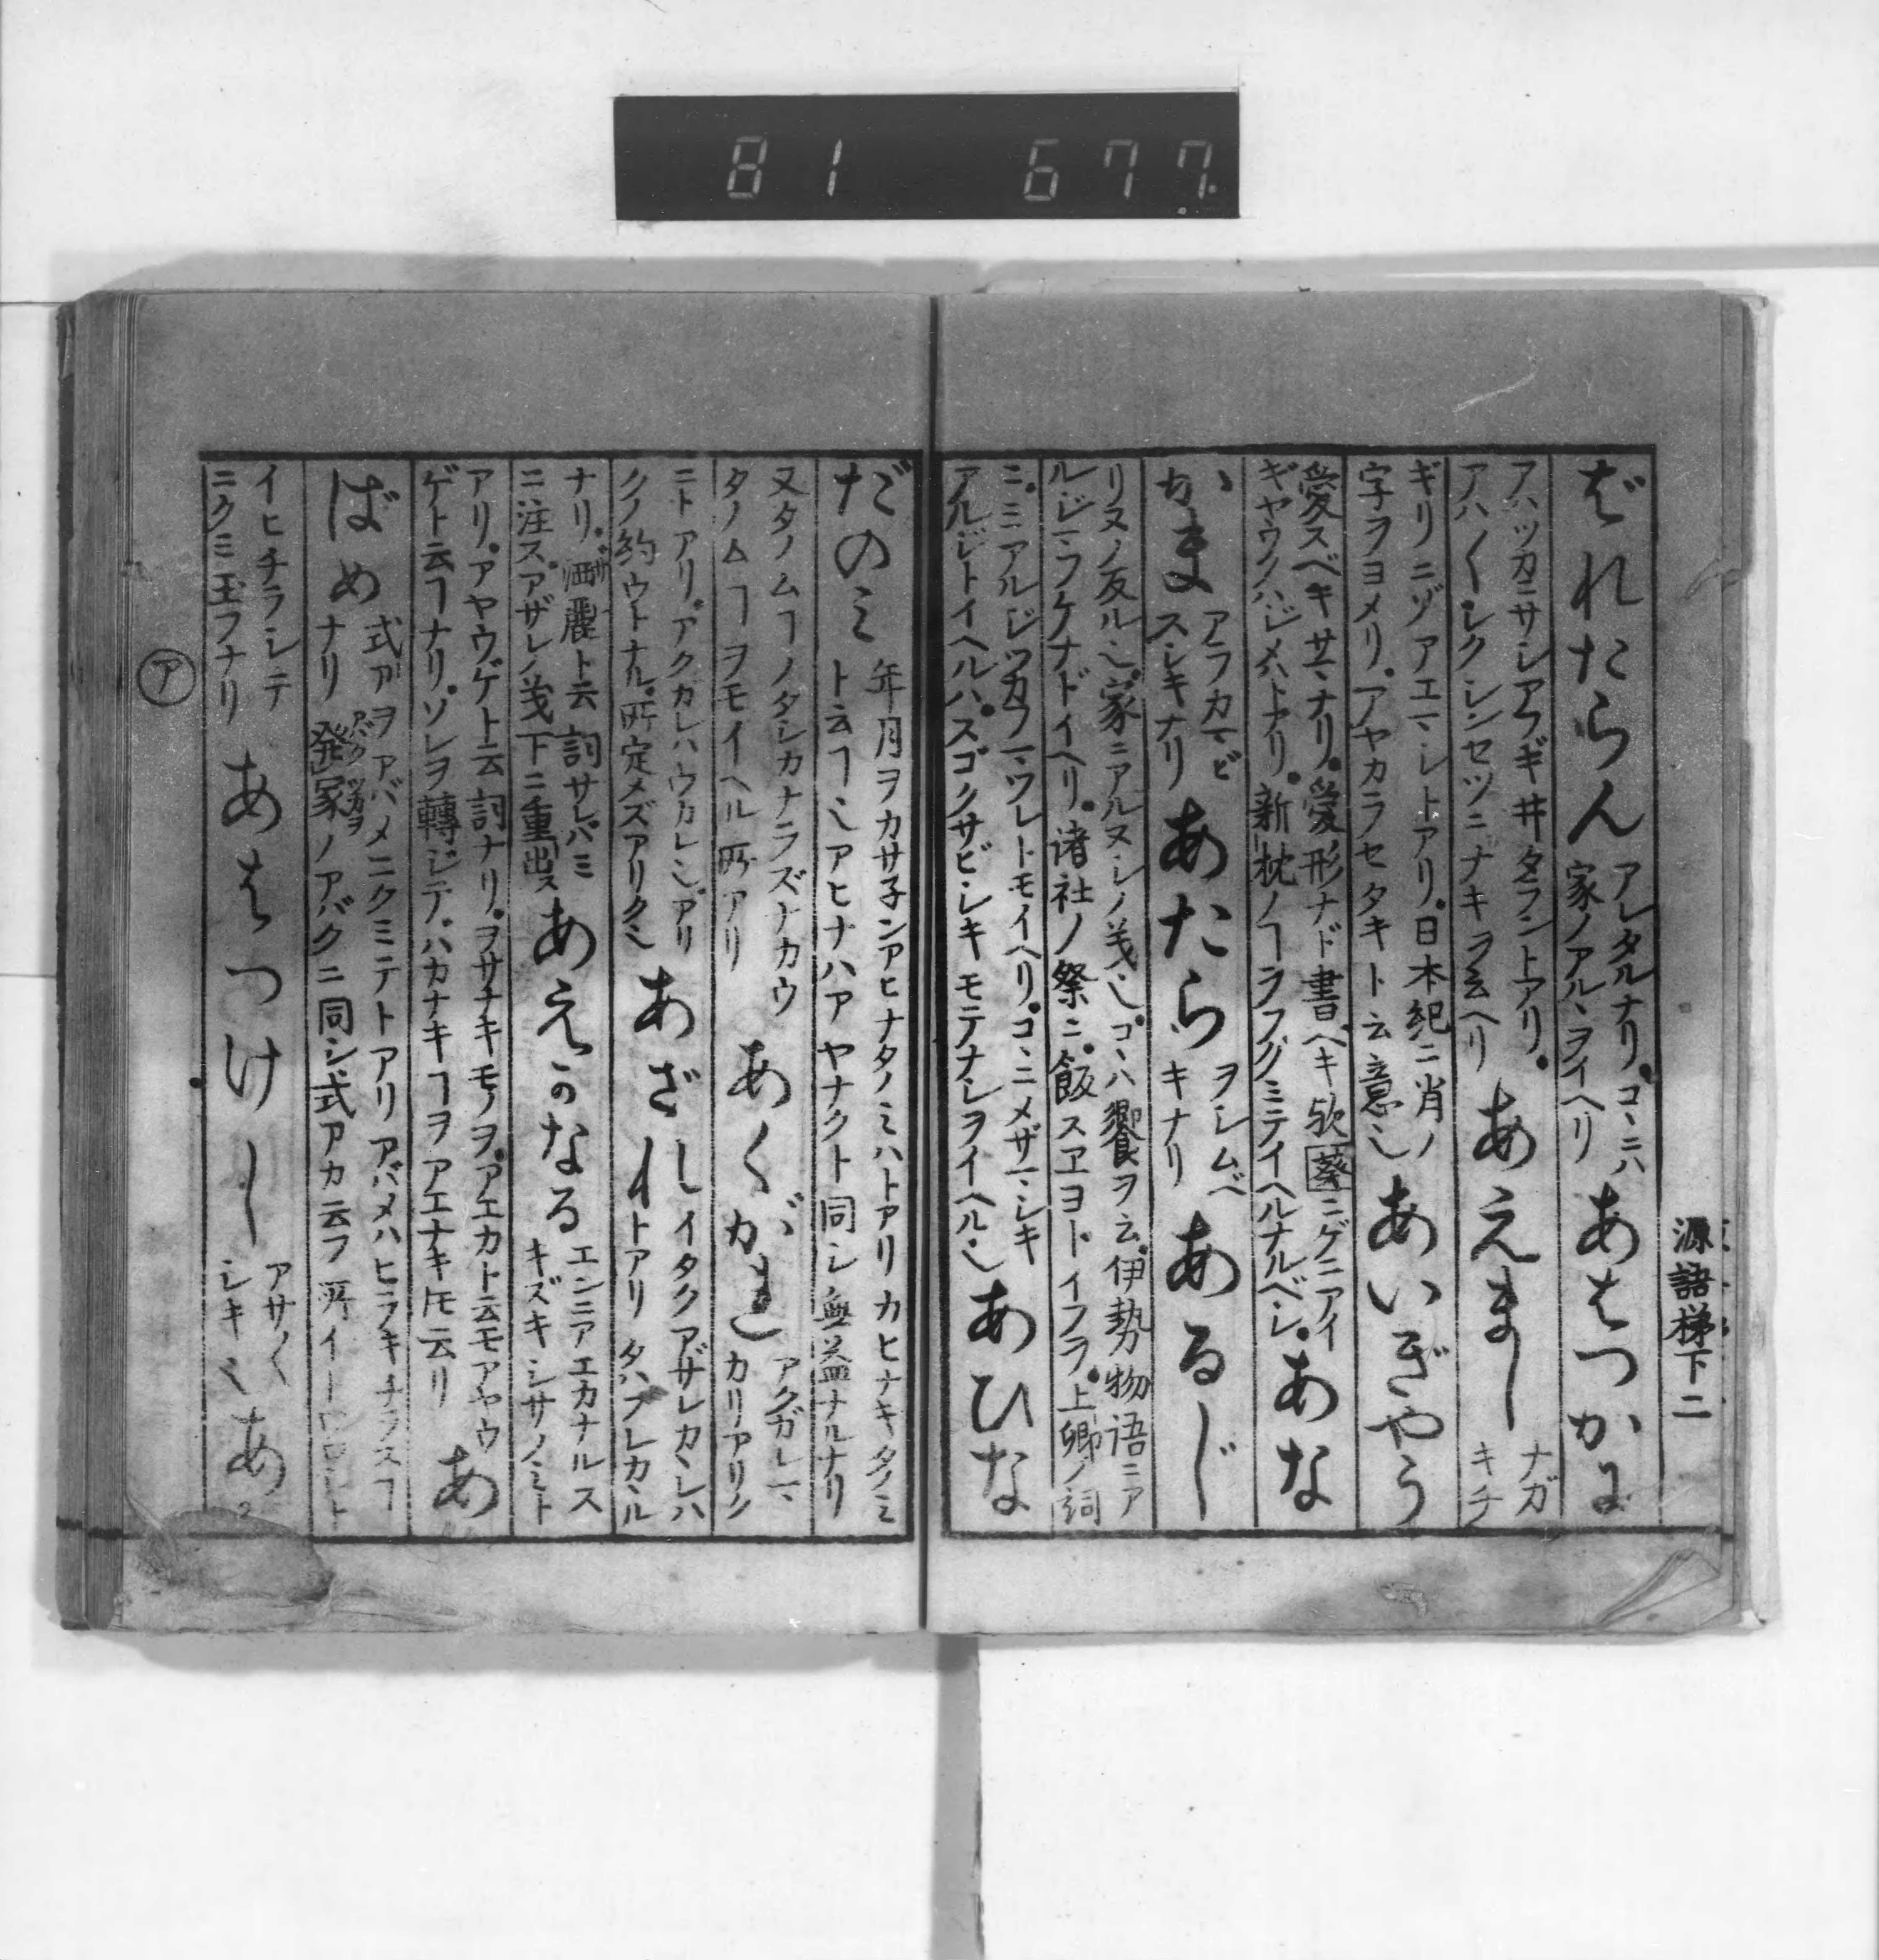 81 677
源語梯下二
ばれたらん アレタルナリ。コヽニハ
家ノアルヽヲイヘリ あはつかに
アハツカニサシアフギ井タラントアリ。
アハ〱シクシンセツニナキヲ云ヘリ あえまし ナガ
キチ
ギリニゾアエマシトアリ。日本紀ニ肖ノ
字ヲヨメリ。アヤカラセタキト云意也 あいぎやう
愛スベキサマナリ。愛形ナド書ベキ欤葵ニゲニアイ
ギヤウノハジメハトアリ。新枕ノヿヲフクミテイヘルナルベシ。 あな
かま アラカマビ
スシキナリ あたら ヲシムベ
キナリ あるじ
リヌノ反ル也。家ニアルヌシノ義也。コヽハ饗ヲ云。伊勢物語ニア
ルジマフケナドイヘリ。諸社ノ祭ニ。飯スヱヨトイフヲ。上卿ノ詞
ニ。ニアルジツカフマツレトモイヘリ。コヽニメザマシキ
アルジトイヘルハ。スゴクサビシキモテナシヲイヘル也 あひな
だのミ 年月ヲカサ子ンアヒナタノミハトアリカヒナキタノミ
ト云ヿ也アヒナハアヤナクト同シ無益ナルナリ
又タノムヿノタシカナラズナカウ
タノムヿヲモイヘル所アリ あくがれ アクガレマ
カリアリク
ニトアリ。アクカレハウカレ也。アリ
クノ約ウトナル。所定メズアリク也 あざれ イタクアザレカヽレハ
トアリタハフレカヽル
ナリ。洒麗ト云詞サレバミ
ニ注ス。アザレノ義下ニ重出ス あえかなる エンニアエカナルス
キズキシサノミト
アリ。アヤウゲト云詞ナリ。ヲサナキモノヲ。アエカト云モアヤウ
ゲト云ヿナリ。ソレヲ轉ジテ。ハカナキヿヲアエナキトモ云リ あ
ばめ 式アヲアバメニクミテトアリアバメハヒラキチラスヿ
ナリ 発冢ノアバクニ同シ式アカ云フ所
イヒチラシテ
ニクミ玉フナリ あはつけし アサ〱
シキ也 あ
ア